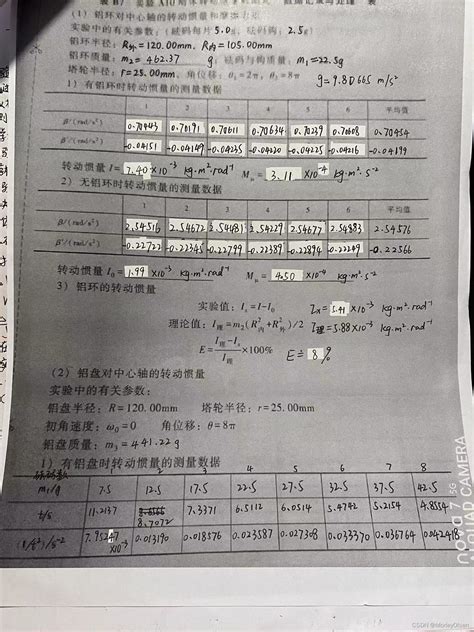 (1) 铝环对中心轴的转动惯量和摩擦力矩
实验中的有关参数：(砝码每片5.0g, 砝码钩：2.5g)
铝环半径：R外=120.00mm, R内=105.00mm
铝环质量：m2=462.37 g; 砝码与钩质量：m1=22.5g
塔轮半径：r=25.00mm, 角位移：θ1=2π, θ2=8π g=9.80665 m/s²
1) 有铝环时转动惯量的测量数据
1 2 3 4 5 6 平均值
β/(rad/s²) 0.70443 0.70191 0.70611 0.70634 0.70239 0.70608 0.70454
β'/(rad/s²) -0.04151 -0.04149 -0.04235 -0.04220 -0.04225 -0.04216 -0.04199
转动惯量 I=7.40×10⁻³ kg·m²·rad⁻¹ Mμ=3.11×10⁻⁴ kg·m·s⁻²
2) 无铝环时转动惯量的测量数据
1 2 3 4 5 6 平均值
β/(rad/s²) 2.54516 2.54672 2.54081 2.54229 2.54677 2.54883 2.54576
β'/(rad/s²) -0.22722 -0.22345 -0.22799 -0.22389 -0.22894 -0.22249 -0.22566
转动惯量 I0=1.99×10⁻³ kg·m²·rad⁻¹ Mμ=4.50×10⁻⁴ kg·m·s⁻²
3) 铝环的转动惯量
实验值：Ix=I-I0 Ix=5.41×10⁻³ kg·m²·rad⁻¹
理论值：I理=m2(R²内+R²外)/2 I理=5.88×10⁻³ kg·m²·rad⁻¹
E=(I理-Ix)/I理×100% E=8%
(2) 铝盘对中心轴的转动惯量
实验中的有关参数：
铝盘半径：R=120.00mm 塔轮半径：r=25.00mm
初角速度：ω0=0 角位移：θ=8π
铝盘质量：m3=441.22g
1) 有铝盘时转动惯量的测量数据
砝码数 2 3 4 5 6 7 8
m1/g 7.5 12.5 17.5 22.5 27.5 32.5 37.5 42.5
t/s 11.2137 8.7072 7.3371 6.5112 6.0514 5.4742 5.2154 4.8554
(1/t²)/s⁻² 7.95247×10⁻³ 0.013190 0.018576 0.023587 0.027308 0.033370 0.036764 0.042418
nova 7 5G
CAMERA
CSDN @MorleyOlsen